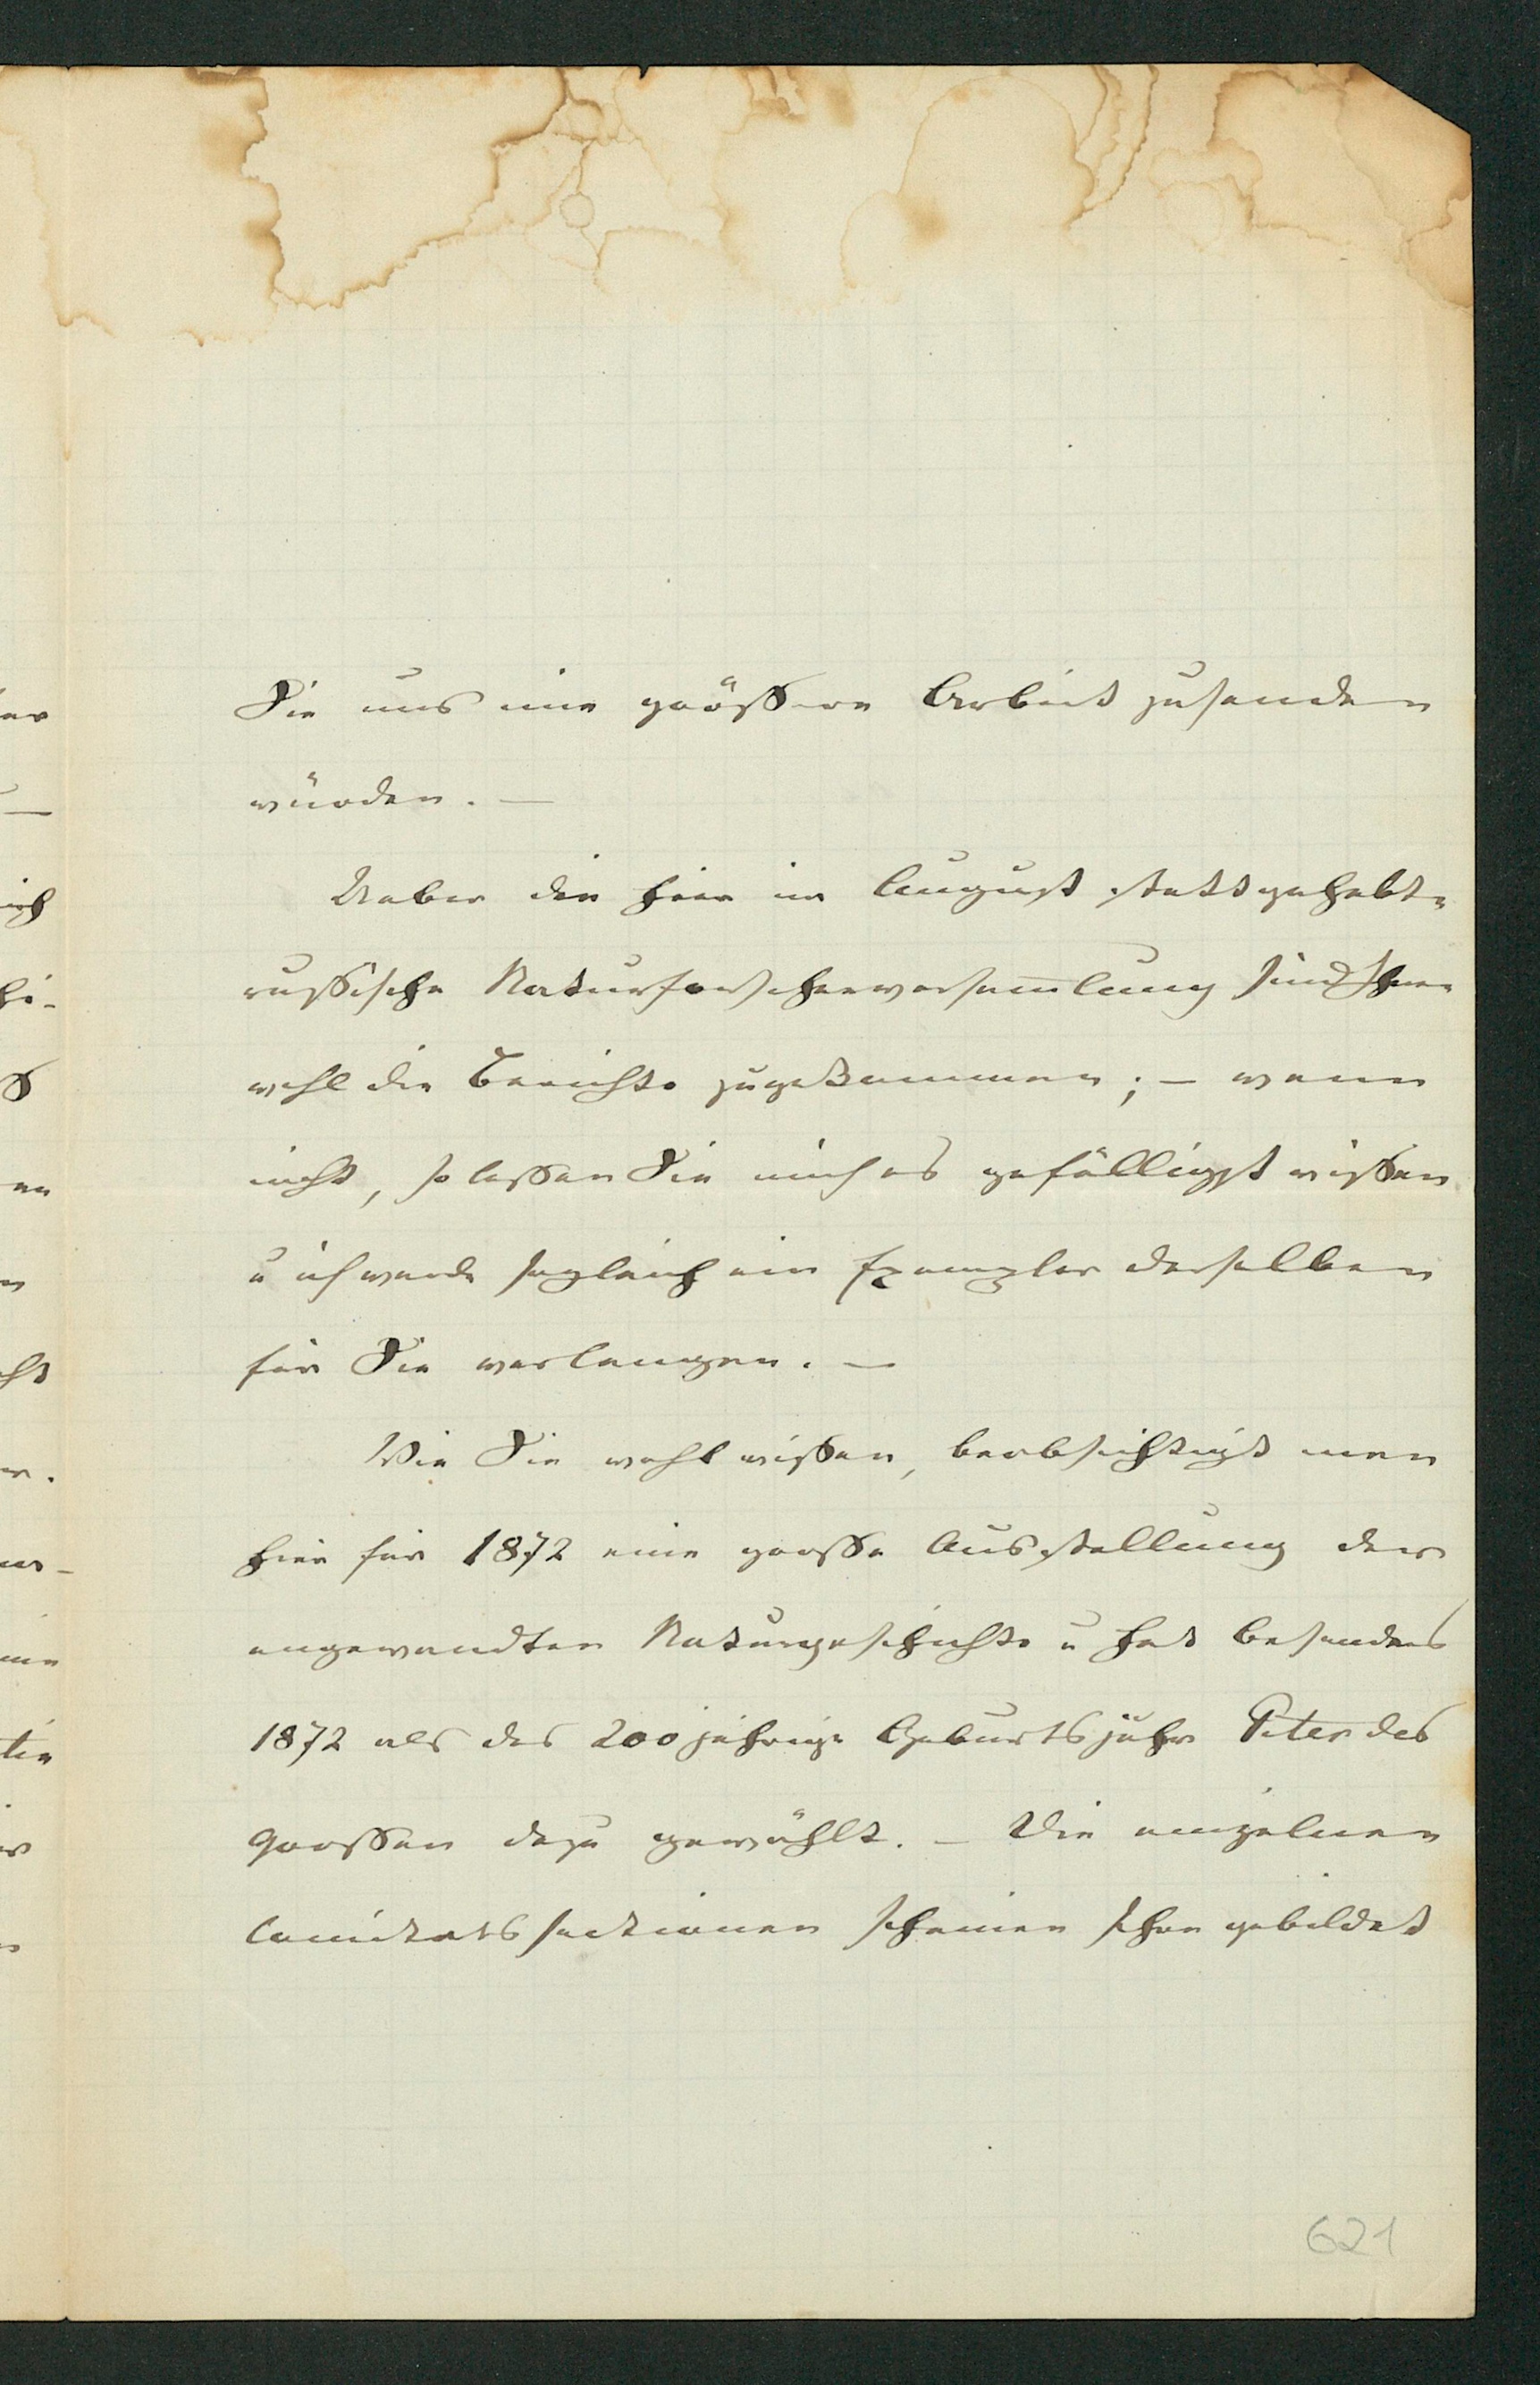 Sie uns eine größere Arbeit zusenden
würden. —
Ueber die hier im August stattgehabte
russische Naturforscherversam̅lung sind Ihnen
wohl die Berichte zugekommen; — wenn
nicht, so lassen Sie mich es gefälligst wissen
u ich werde sogleich ein Exemplar derselben
für Sie verlangen. —
Wie Sie wohl wissen, beabsichtigt man
hier für 1872 eine grosse Ausstellung der
angewandten Naturgeschichte u hat besonders
1872 als das 200jährige Geburtsjahr Peter des
Grossen dazu gewählt. — Die einzelnen
Comitatssectionen scheinen schon gebildet
621